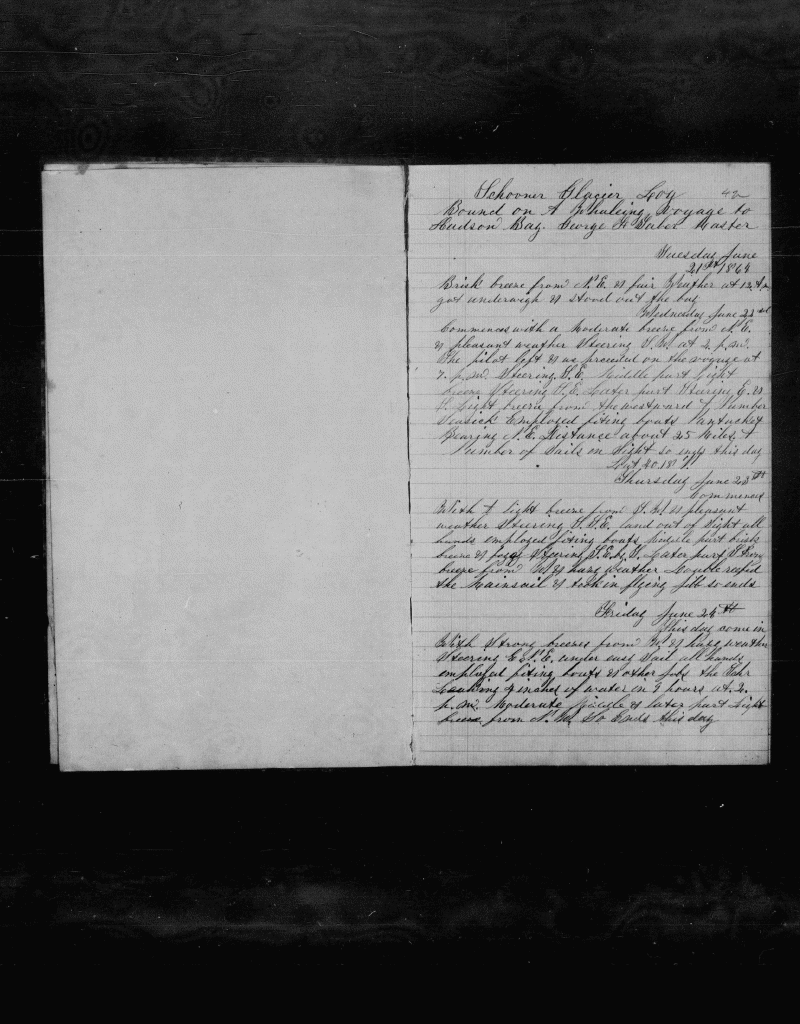 Schooner Glacier Log 42
Bound on A Whaleing Voyage to
Hudson Bay. George F Tabor Master
Tuesday June
21st 1864
Brisk breeze from N.E. & fair Weather at 12
got underweigh & stood out the bay
Wednesday June 22nd
Commences with a Moderate breeze from N.E.
& pleasant weather Steering S.W. at 2 p.m.
The pilot left & we proceeded on the voyage at
7. p.m. Steering S.E. Middle part light
breeze Steering S.E. Later part Stearing E. &
S. Light breeze from the westward A Number
Seasick Employed fiting boats Nantucket
Bearing N.E. Distance about 25 Miles A
Number of Sails in Sight so ends this day
Lat 40.18
Thursday June 23
Commences
With A light breeze from S.W. & pleasant
weather Steering S.S.E. land out of Sight all
hands employed fiting boats Middle part brisk
breeze & foggy Steering S.E. by S. Later part Strong
breeze from W. & hazy weather Double reefed
the Mainsail & took in flying jibb so ends
Friday June 24th
This day comes in
With Strong breezes from W. & hazy weather
Steering E.N.E. under easy Sail all hands
employed fiting boats & other jobs the Schr
Leaking inches of water in 9 hours at 2.
p.m. Moderate Middle & later part Light
breeze from N.W. So Ends this day